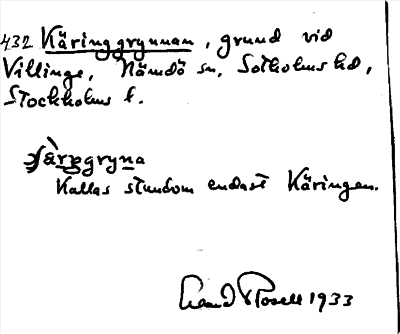 432 Käringgrynnan, grund vid
Villinge, Nämdö sn, Sotholms hd,
Stockholms l.
grỳna
Kallas stundom endast Käringen.
Rosell 1933